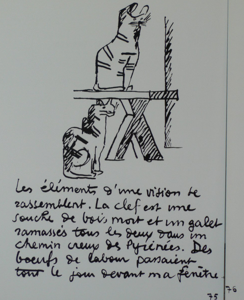 Les éléments d'une vision se
rassemblent. La clef est une
souche de bois mort et un galet
ramassés tous les deux dans un
chemin creux des Pyrénées. Des
boeufs de labour passaient
tout le jour devant ma fenêtre.
76
75